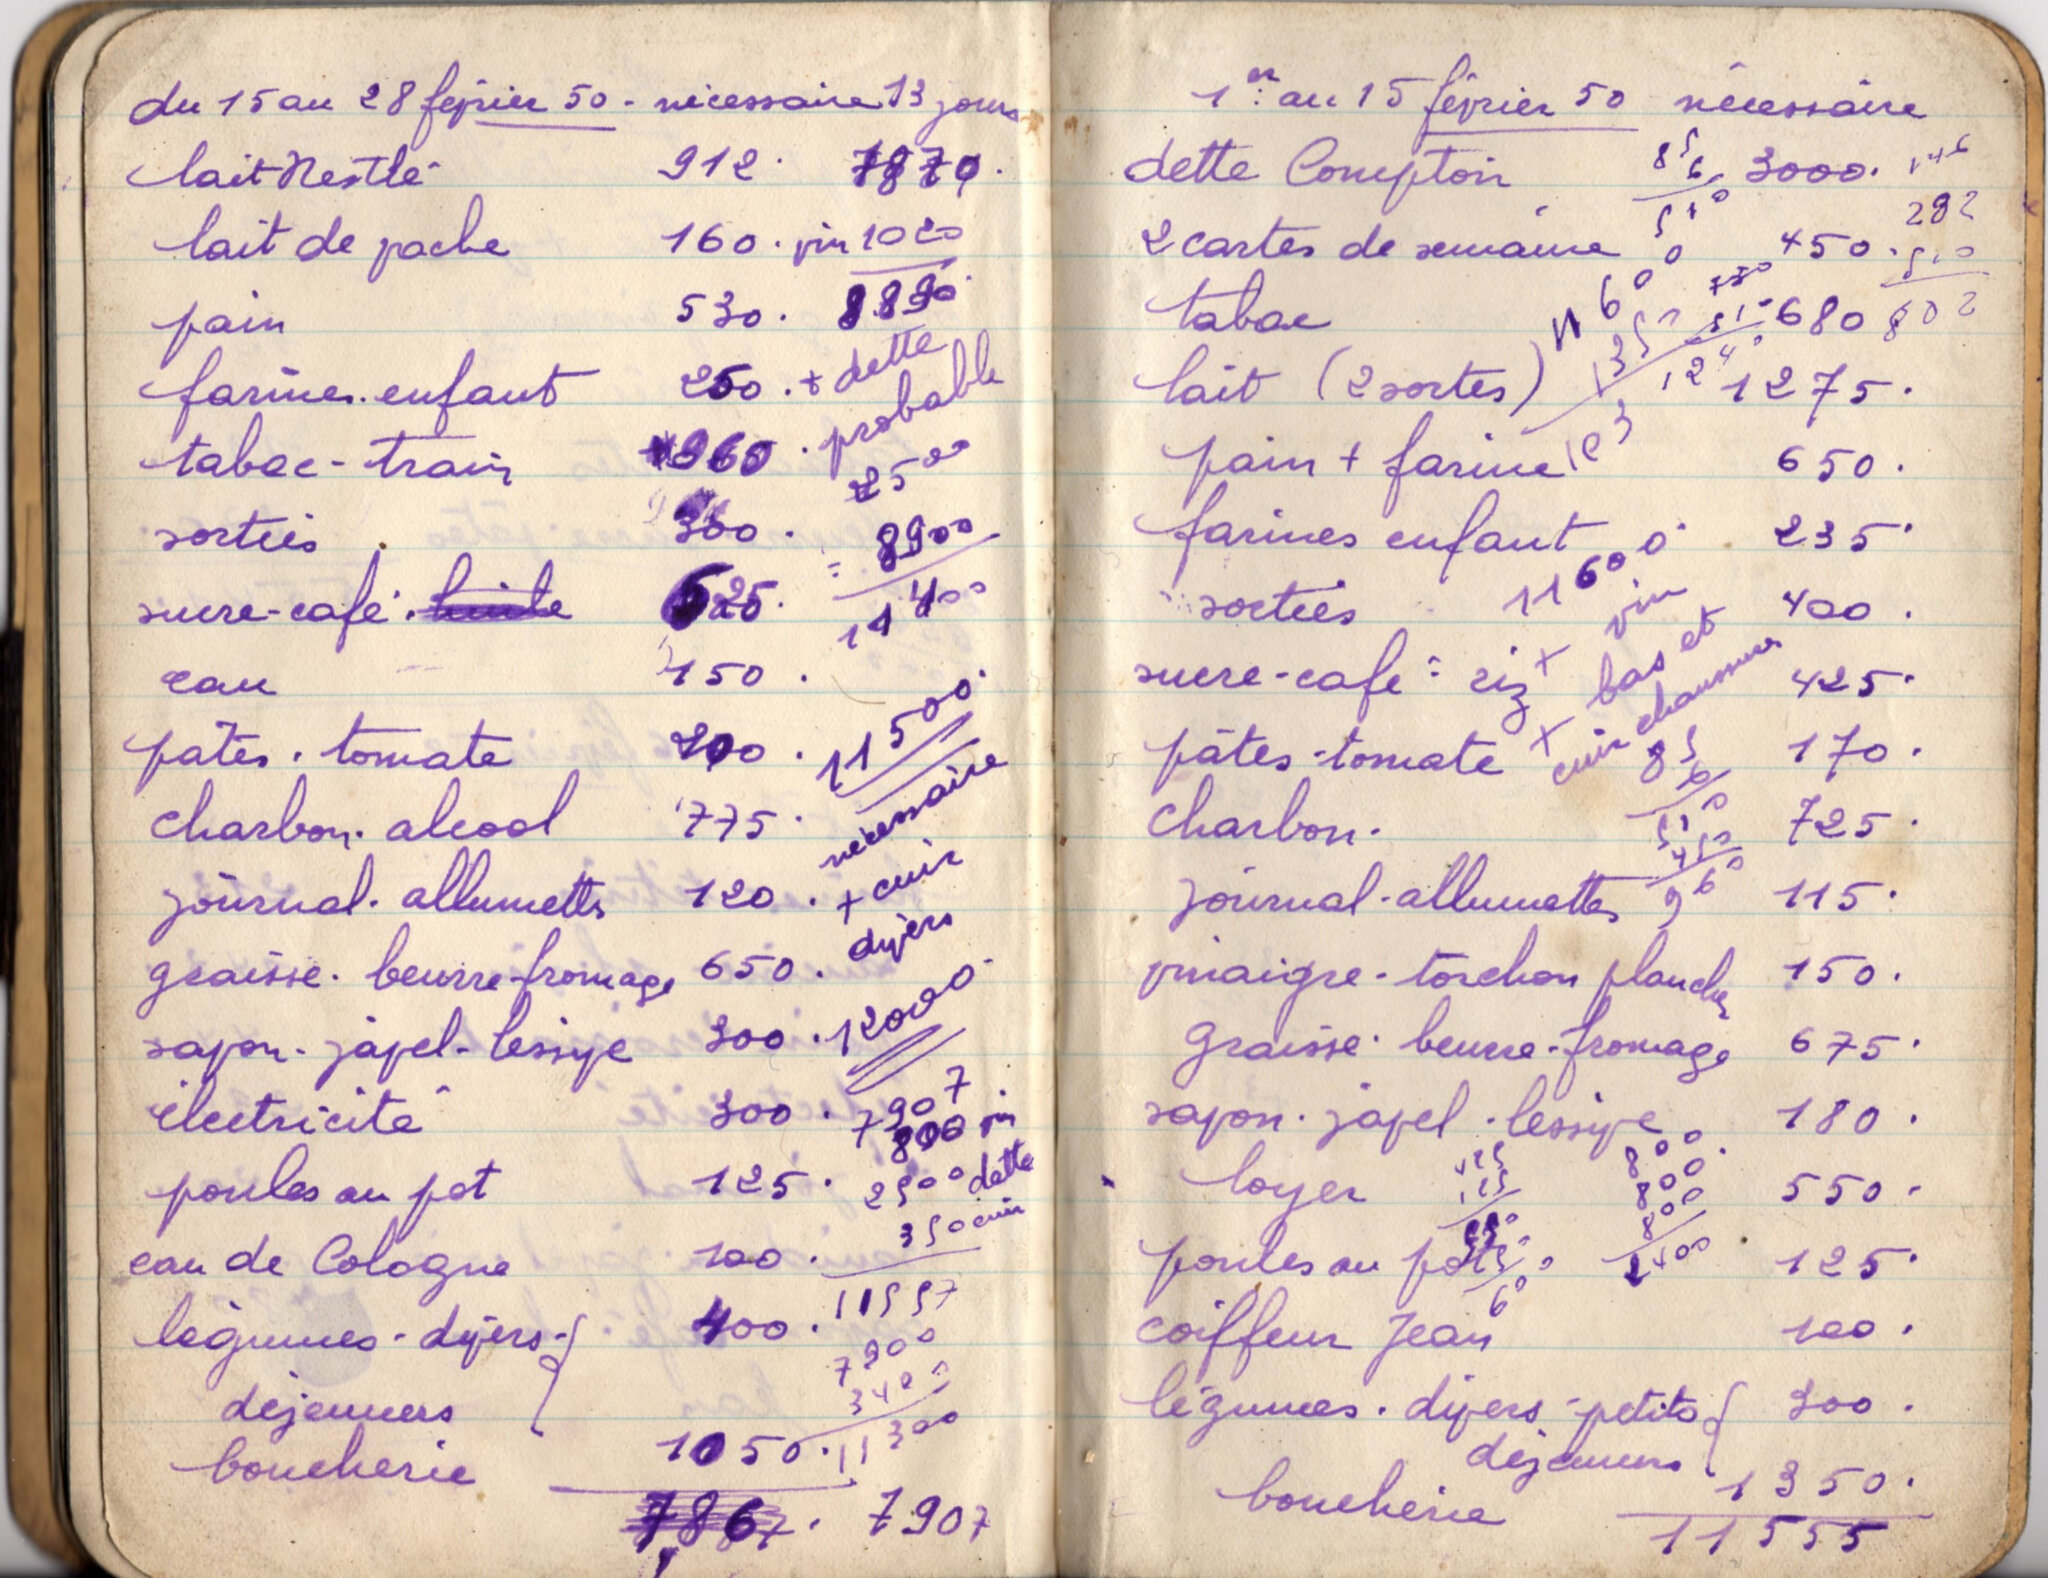 du 15 au 28 février 50 - nécessaire 13 jours
lait Nestlé 912. 7870.
lait de vache 160. vin 1020
pain 530. 8890.
farines enfant 250. + dette
tabac - train 960. probable
2500
sorties 300. = 8900
sucre-café. huile 625. 11400
eau 150.
pâtes. tomate 200. 11500.
charbon. alcool 775. nécessaire
journal. allumettes 120. + cuir
graisse. beurre-fromage 650. divers
savon. javel - lessive 300. 12000.
électricité 300. 7907
poules au pot 125. 800 vin
2500 dette
eau de Cologne 100. 350 cuir
légumes - divers - 400. 11557
déjeuners 7900
3400
boucherie 1050. 11300
7867. 7907
1er au 15 février 50 nécessaire
dette Comptoir 85 3000. 146
6
510 282
2 cartes de semaine 450. 510
tabac 11600 730 680 802
1350 510
lait (2 sortes) 1240 1275.
103
pain + farine 650.
farines enfant 235.
sorties 11600. 400.
sucre-café - riz + vin 425.
+ bas et
pâtes - tomate cuir chaussures 170.
85
6
charbon. 510 725.
450
journal - allumettes 960 115.
vinaigre - torchon plancher 150.
graisse. beurre-fromage 675.
savon. javel. lessive 180.
loyer 425 800. 550.
125 800
800
poules au pot 2400 125.
60
coiffeur Jean 100.
légumes. divers - petits 300.
déjeuners
boucherie 1350.
11555